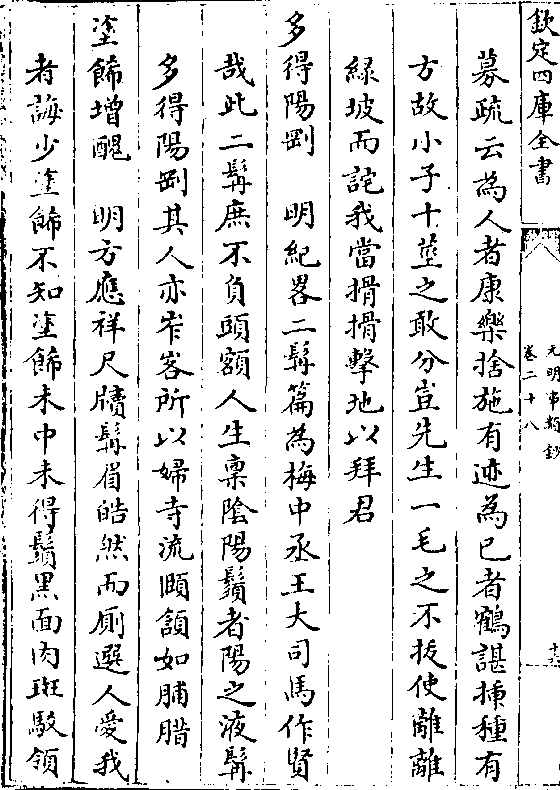 欽定四庫全書
元明事類鈔
卷二十八
募疏云為人者康樂捨施有迹為已者鶴諶揷種有
方故小子十莖之敢分豈先生一毛之不拔使離離
緑坡而詫我當搰搰擊地以拜君
多得陽剛　明紀畧二髯篇為梅中丞王大司馬作賢
哉此二髯庶不負頭額人生禀陰陽鬚者陽之液髯
多得陽剛其人亦岝㟯所以婦寺流頤頷如脯腊
塗餙増醜　明方應祥尺牘髯眉皓然而厠選人愛我
者誨少塗餙不知塗餙未中未得鬚黒面肉斑駁領